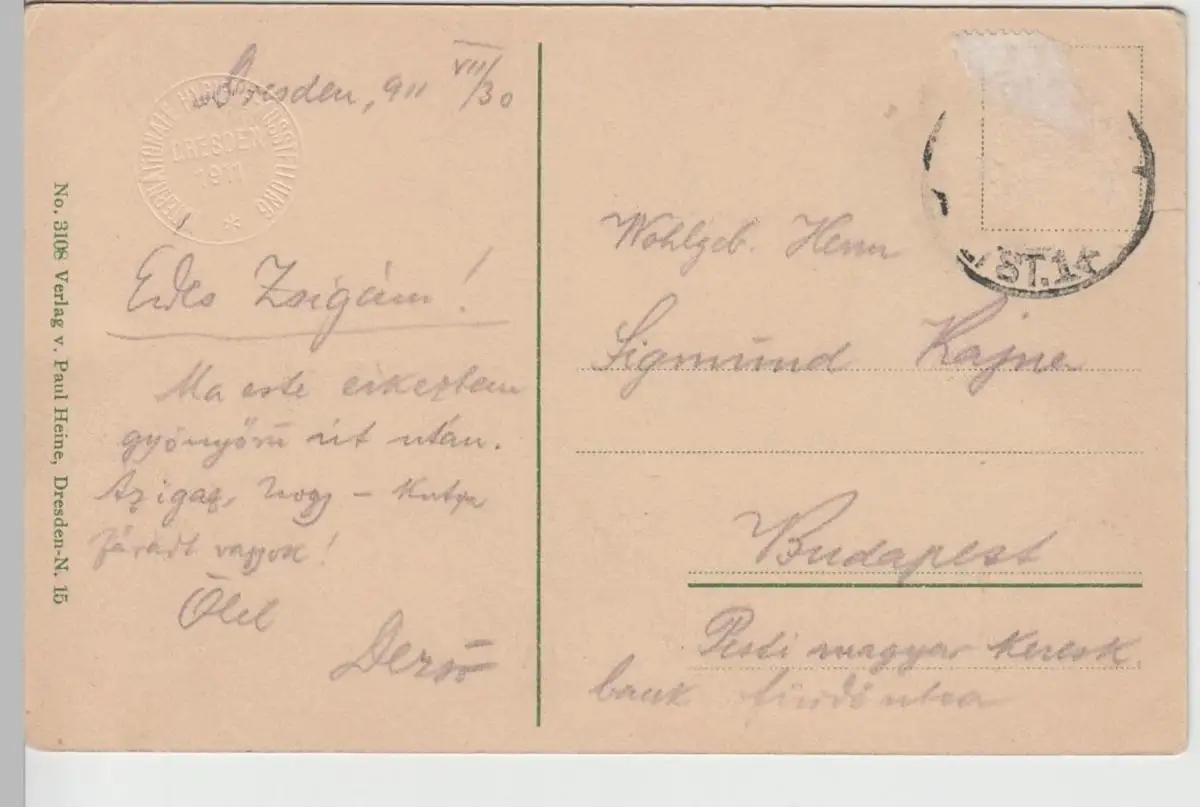 Dresden, 911 VII/30
INTERNATIONALE HYGIENE AUSSTELLUNG
DRESDEN
1911
Édes Zsigám!
Ma este érkeztem
gyönyörű út után.
Az igaz, hogy – kutya
fáradt vagyok!
Ölel
Dezső
No. 3108 Verlag v. Paul Heine, Dresden-N. 15
ST.
Wohlgeb. Herrn
Sigmund Rajna
Budapest
Pesti magyar keresk.
bank fürdő utca